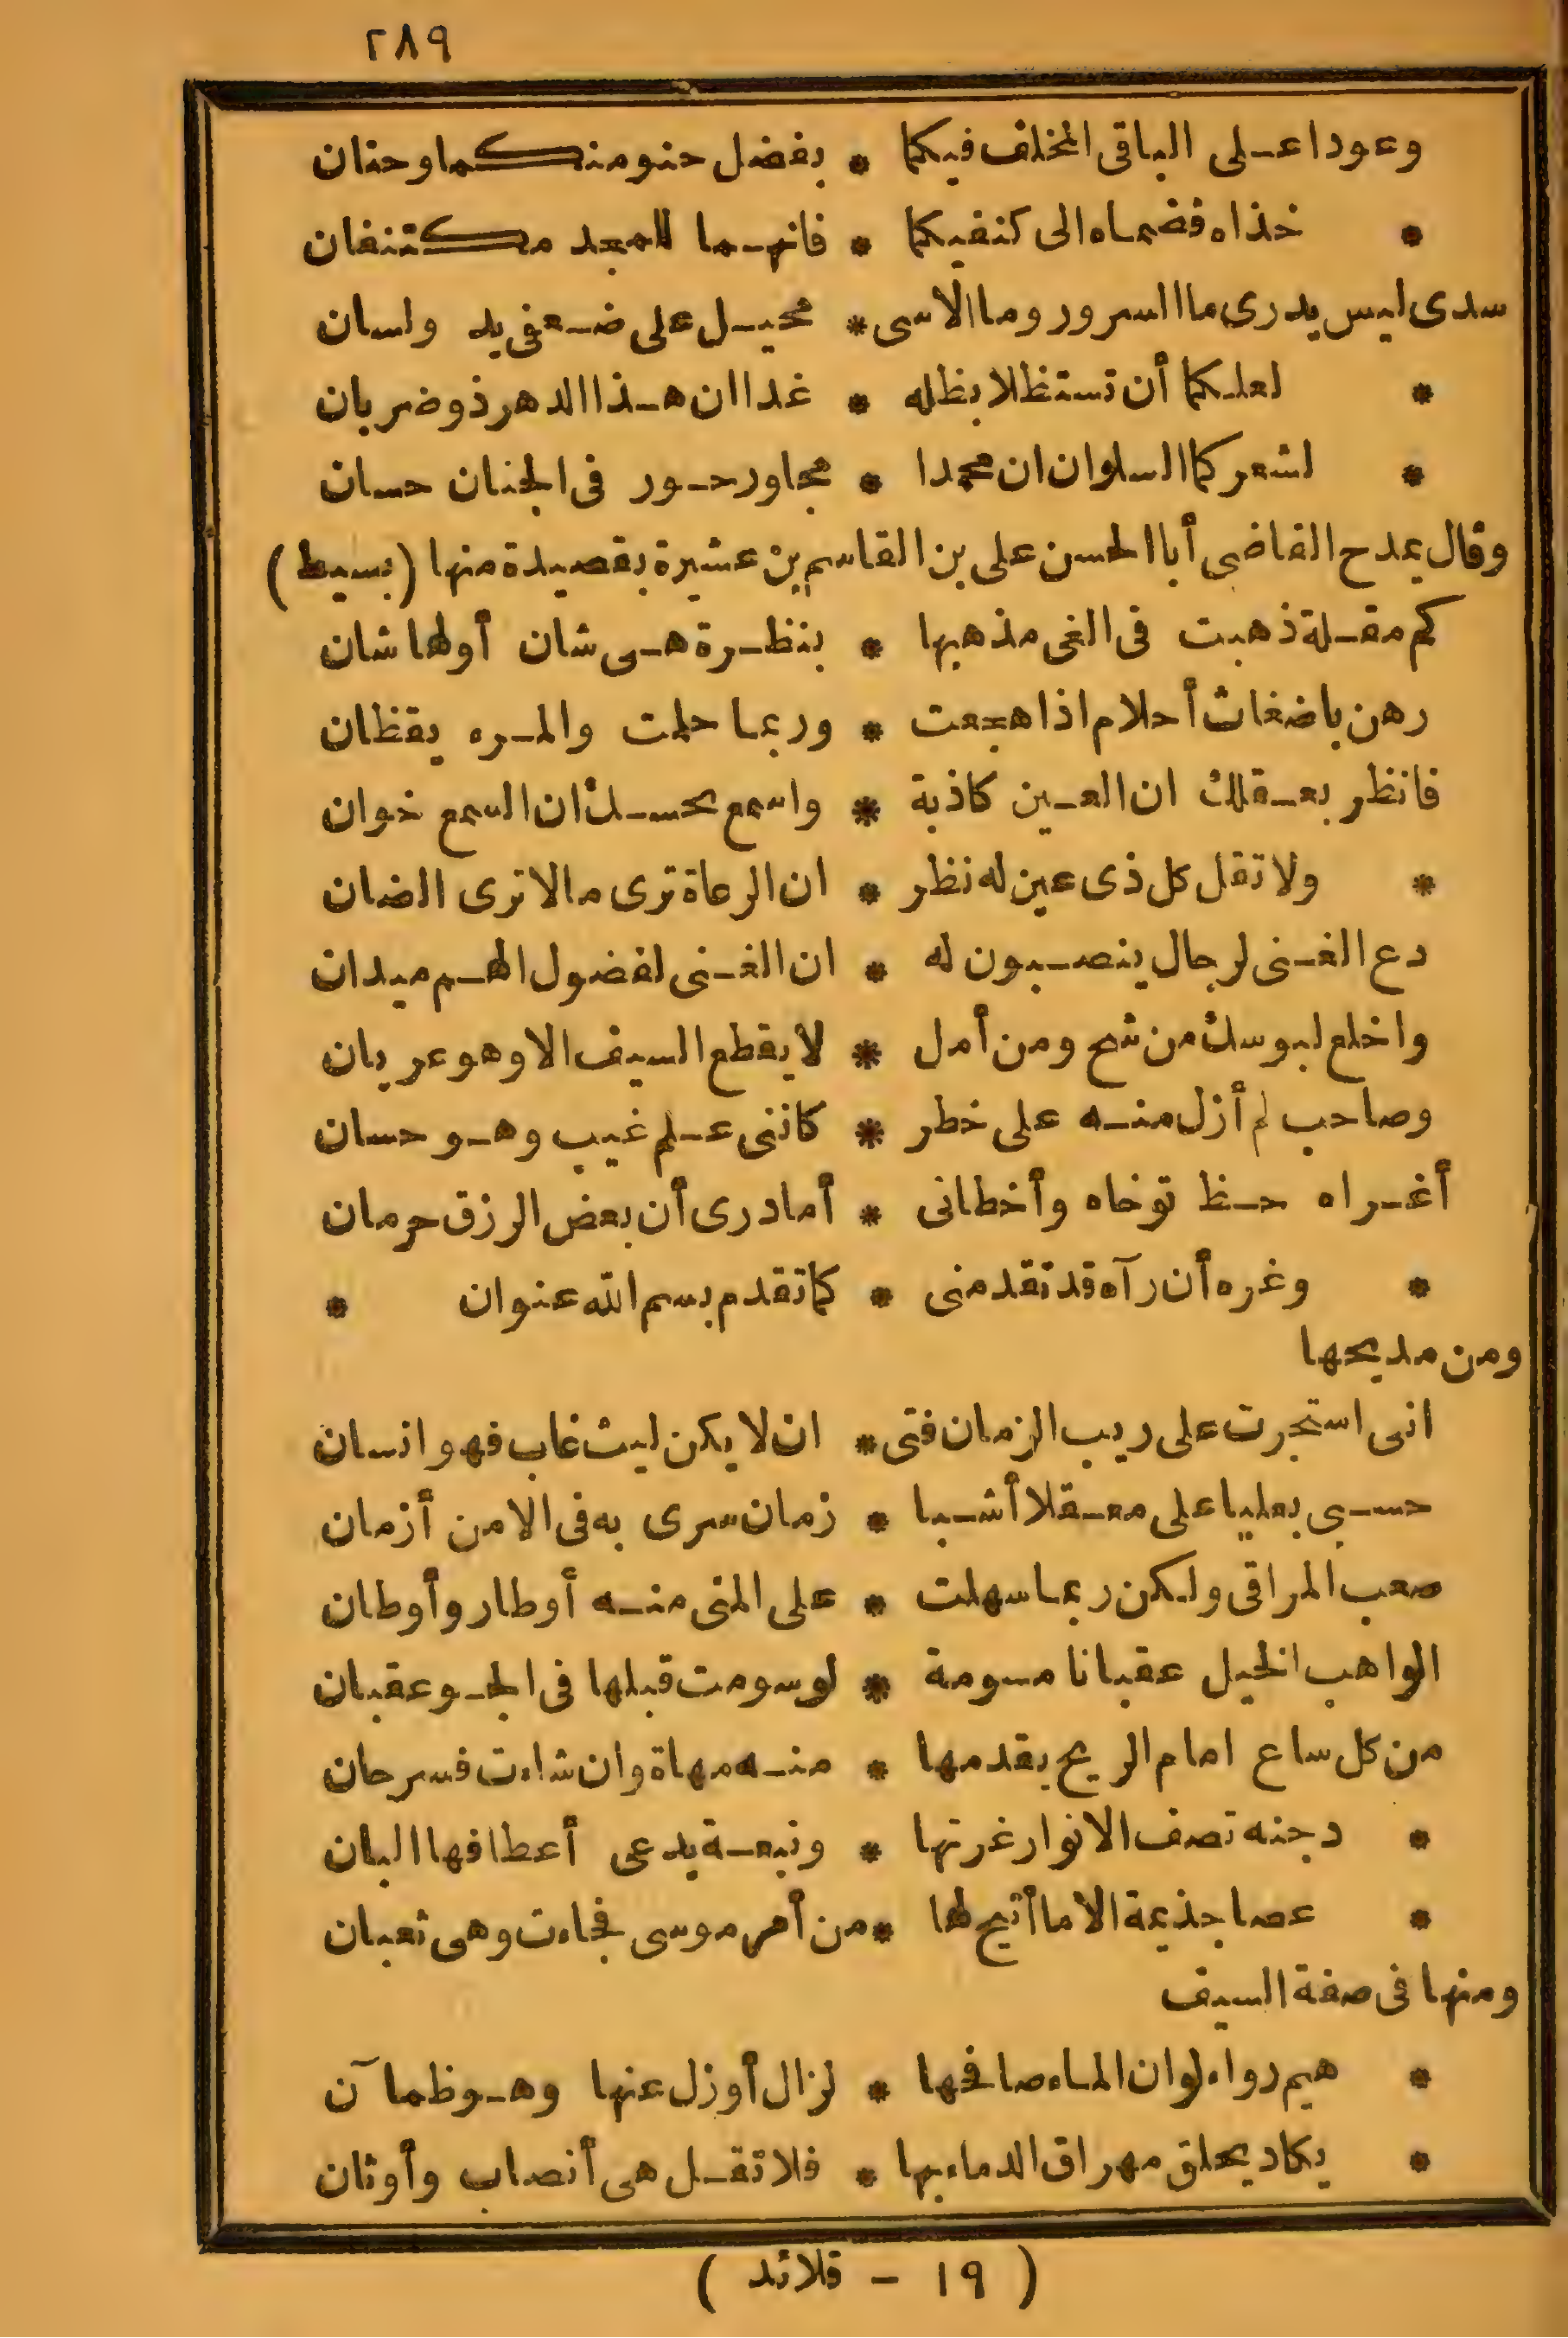 ٢٨٩
وعودا على الباقى المخلف فيكما * بفضل حنو منكما وحنان
* خذاه فضماه الى كنفيكما * فانهما للمجد مكتنفان
سدى ليس يدرى ما السرور وما الاسى * محيل على ضعفى يد ولسان
* لعلكما أن تستظلا بظله * غدا ان هذا الدهر ذو ضربان
* لشعركما السلوان ان محمدا * مجاور حور فى الجنان حسان
وقال يمدح القاضى أبا الحسن على بن القاسم بن عشيرة بقصيدة منها (بسيط)
كم مقلة ذهبت فى الغى مذهبها * بنظرة هى شان أو لها شان
رهن باضغاث أحلام اذا هجعت * وربما حلمت والمرء يقظان
فانظر بعقلك ان العين كاذبة * واسمع بحسك ان السمع خوان
* ولا تقل كل ذى عين له نظر * ان الرعاة ترى ما لا ترى الضان
دع الغنى لرجال ينصبون له * ان الغنى لفضول الهم ميدان
واخلع لبوسك من شح ومن أمل * لا يقطع السيف الا وهو عريان
وصاحب لم أزل منه على خطر * كاننى علم غيب وهو حسان
أغراه حظ توخاه وأخطانى * أما درى أن بعض الرزق حرمان
* وغره أن رآه قد تقدمنى * كما تقدم بسم الله عنوان *
ومن مديحها
انى استجرت على ريب الزمان فتى * ان لا يكن ليث غاب فهو انسان
حسبى بعليا على معقلا أشبا * زمان سرى به فى الامن أزمان
صعب المراقى ولكن ربما سهلت * على المنى منه أوطار وأوطان
الواهب الخيل عقبانا مسومة * لو سومت قبلها فى الجو عقبان
من كل ساع امام الريح يقدمها * منه مهاة وان شاءت فسرحان
* دجنه تصف الانوار غرتها * ونبعة يدعى أعطافها البان
* عصا جذيمة الا ما أتيح لها * من أمر موسى فجاءت وهى ثعبان
ومنها فى صفة السيف
* هيم رواء لو ان الماء صافحها * لزال أو زل عنها وهو ظمآن
* يكاد يحلق مهراق الدماء بها * فلا تقل هى أنصاب وأوثان
( ١٩ - قلائد )